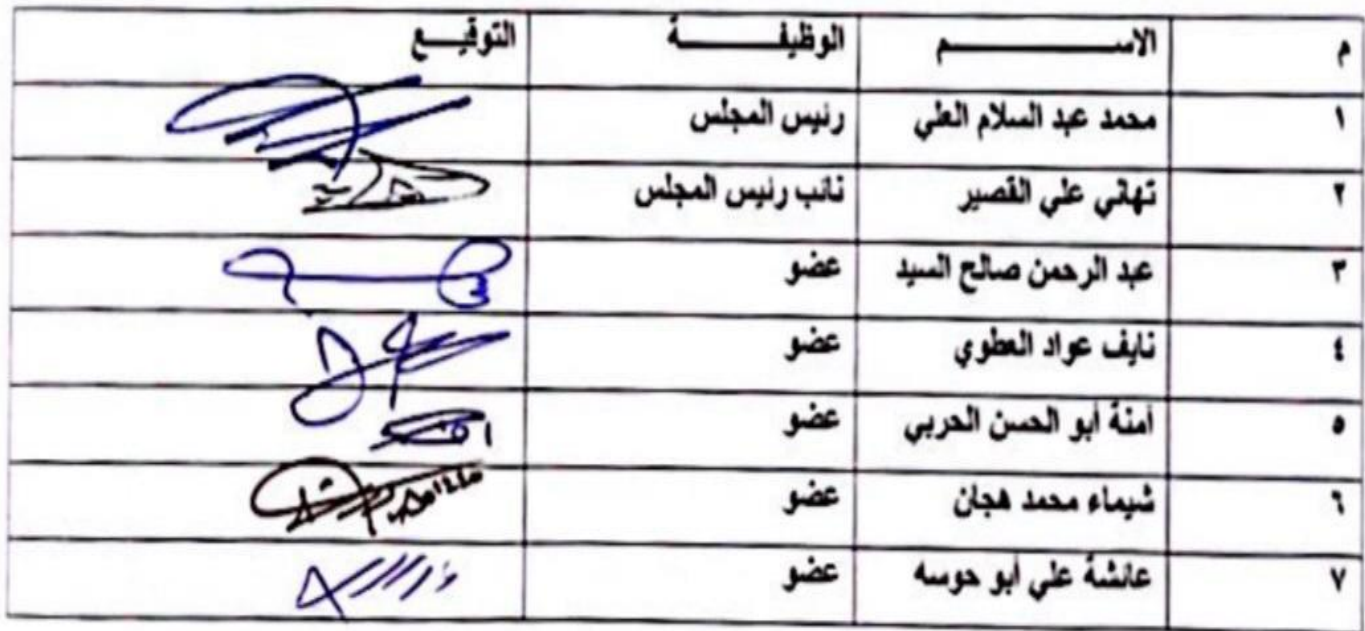 م الاســـــــم الوظيفـــــــة التوقيـــع
١ محمد عبد السلام العلي رئيس المجلس
٢ تهاني علي القصير نائب رئيس المجلس
٣ عبد الرحمن صالح السيد عضو
٤ نايف عواد العطوي عضو
٥ امنة أبو الحسن الحربي عضو
٦ شيماء محمد هجان عضو
٧ عائشة علي أبو حوسه عضو